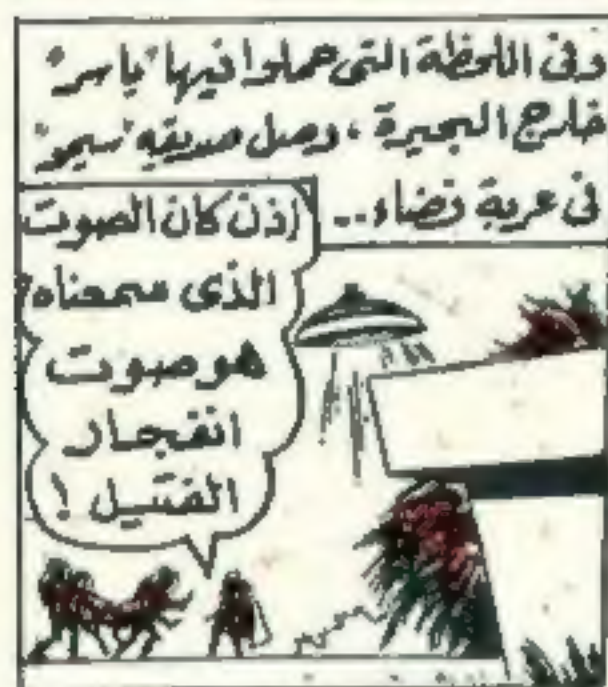 وفى اللحظة التى حملوا فيها "ياسر"
خارج البحيرة ، وصل صديقه "سيمو"
فى عربة فضاء ..
إذن كان الصوت
الذى سمعناه
هو صوت
انفجار
الفتيل !